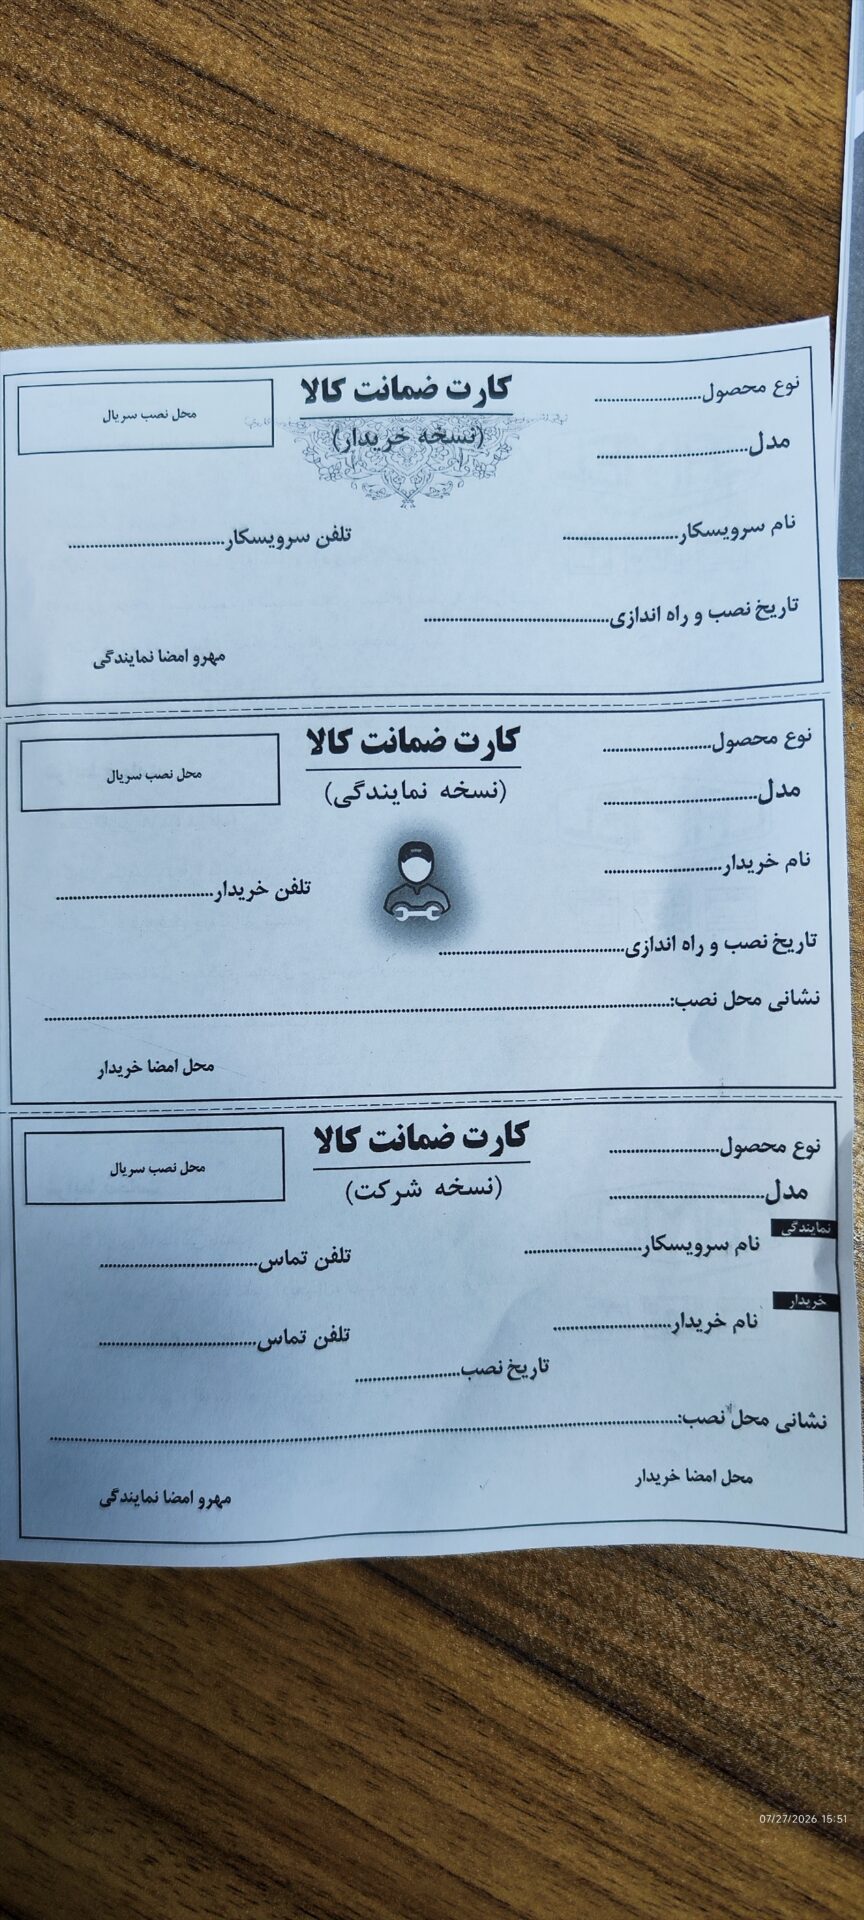 نوع محصول........................
کارت ضمانت کالا
محل نصب سریال
(نسخه خریدار)
مدل..................................
نام سرویسکار.........................
تلفن سرویسکار..................................
تاریخ نصب و راه اندازی.........................................
مهرو امضا نمایندگی
نوع محصول........................
کارت ضمانت کالا
محل نصب سریال
(نسخه نمایندگی)
مدل..................................
نام خریدار..........................
تلفن خریدار..................................
تاریخ نصب و راه اندازی.........................................
نشانی محل نصب:..........................................................................................................................................
محل امضا خریدار
نوع محصول........................
کارت ضمانت کالا
محل نصب سریال
(نسخه شرکت)
مدل..................................
نمایندگی
نام سرویسکار..........................
تلفن تماس..................................
خریدار
نام خریدار..........................
تلفن تماس..................................
تاریخ نصب.......................
نشانی محل نصب:..........................................................................................................................................
محل امضا خریدار
مهرو امضا نمایندگی
07/27/2026 15:51